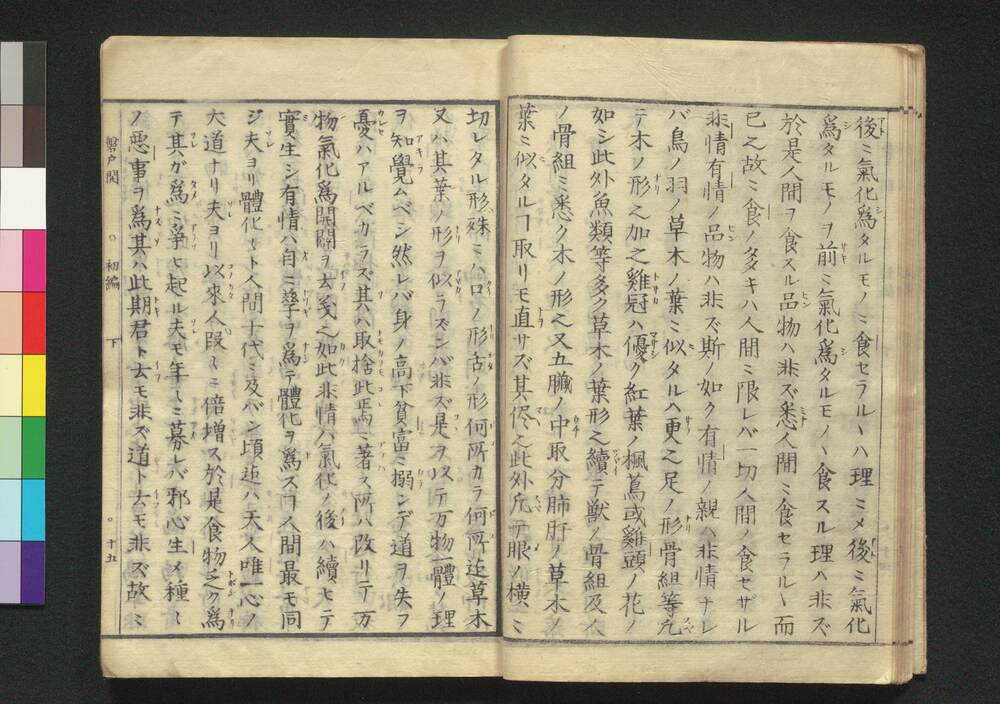 後ミ氣化爲タルモノミ食セラルヽハ理ミメ後ミ氣化
爲タルモノヲ前ミ氣化爲タルモノヽ食スル理ハ非ズ
於是人間ヲ食スル品物ハ非ズ悉人間ミ食セラルヽ而
已之故ミ食ノ多キハ人間ミ限レバ一切人間ノ食セザル
非情有情ノ品物ハ非ズ斯ノ如ク有情ノ親ハ非情ナレ
バ鳥ノ羽ノ草木ノ葉ミ似タルハ更之足ノ形骨組等凡
テ木ノ形之加之雞冠ハ優ク紅葉ノ楓蔦或雞頭ノ花ノ
如シ此外魚類等多ク草木ノ葉形之續テ獣ノ骨組及人
ノ骨組ミ悉ク木ノ形之又五臓ノ中取分肺肝ノ草木ノ
葉ミ似タルヿ取リモ直サズ其侭之此外凡テ眼ノ横ミ
切レタル形殊ミハ口ノ形舌ノ形何所カラ何所迄草木
又ハ其葉ノ形ヲ似ラズンバ非ズ是ヲ以テ万物一體ノ理
ヲ知覺ムベシ然レバ身ノ高下貧富ミ溺ンデ道ヲ失ヲ
憂ハアルベカラズ其ハ取捨此焉ミ著ス所ハ改リテ万
物氣化爲開闢ヲ去爰之如此非情ハ氣化ノ後ハ續ヒテ
實生シ有情ハ自ミ孳ヲ爲テ體化ヲ爲スヿ人間最モ同
ジ夫ヨリ體化シト人間十代ミ及バン頃迄ハ天人唯一心ノ
大道ナリ夫ヨリ以來人段〻ミ倍增ス於是食物乏ク爲
テ其ガ爲ミ爭ヒ起ル夫モ年〻ミ募レバ邪心生メ種〻
ノ惡事ヲ爲其ハ此期君ト去モ非ズ道ト去モ非ズ故ミ
磐戸開 〇初編 下 〇十五